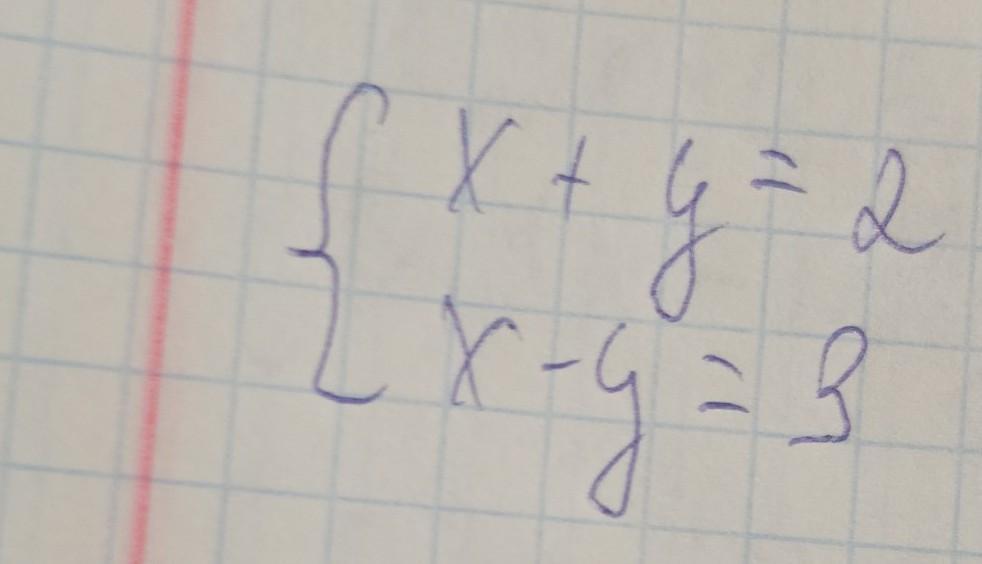 x + y = 2
x - y = 3